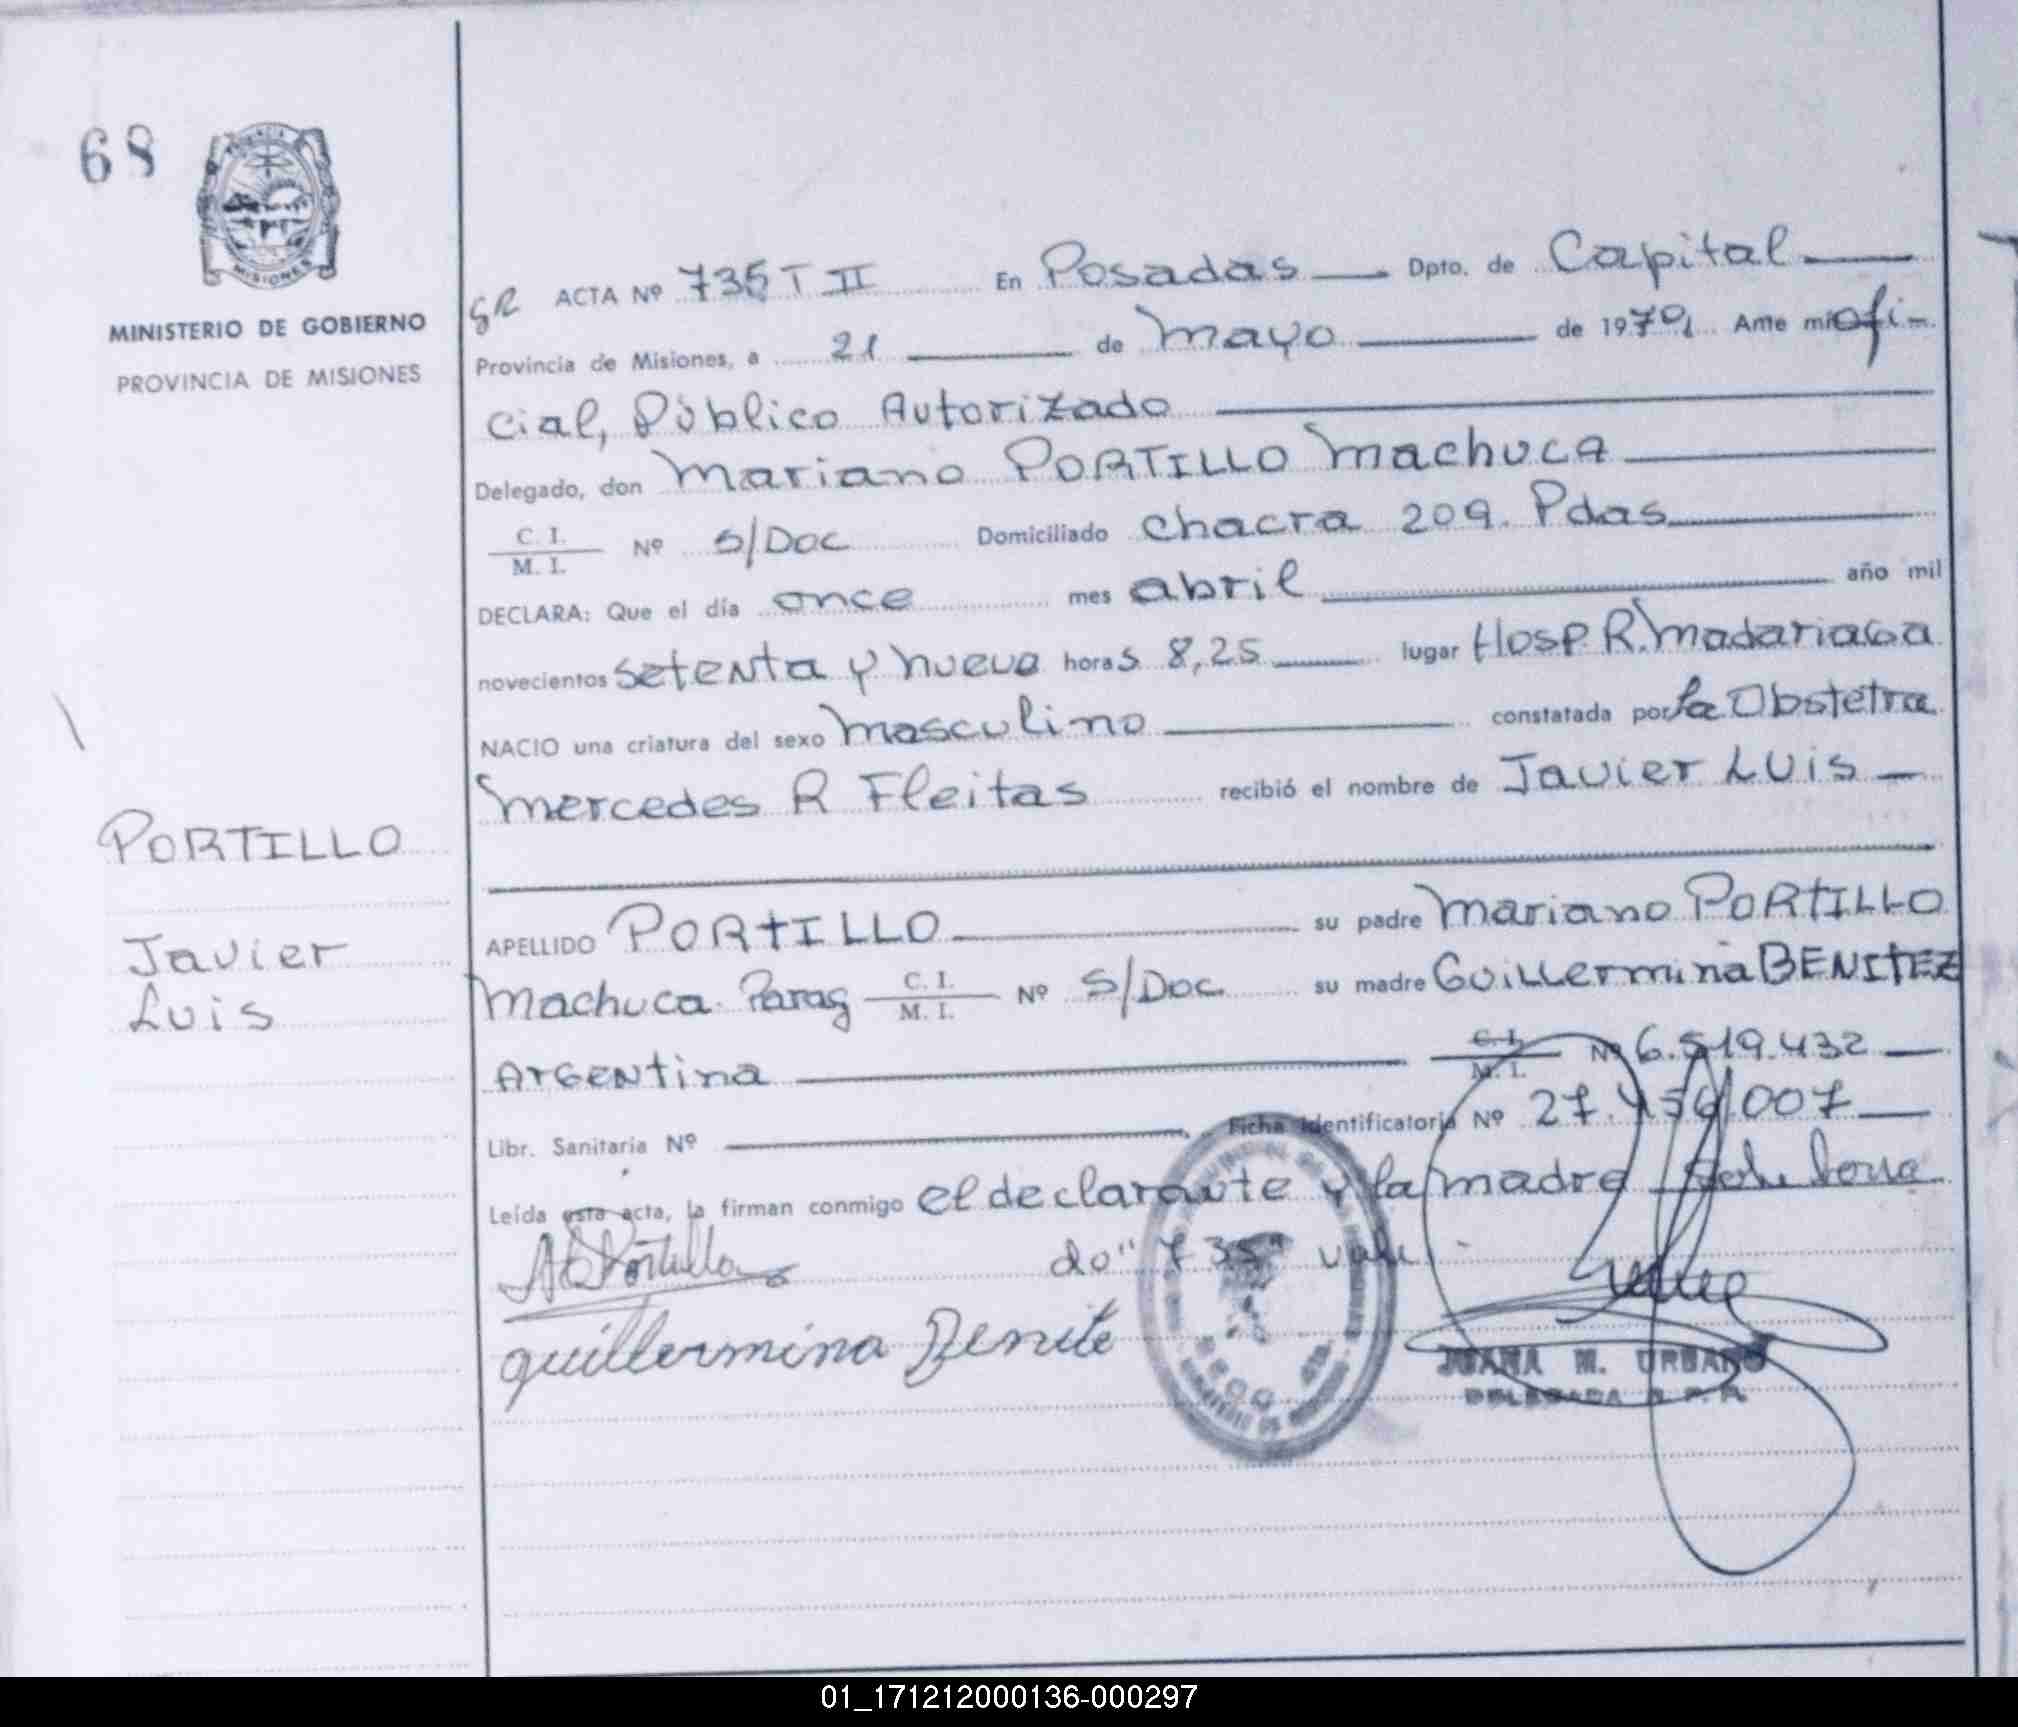 68
MINISTERIO DE GOBIERNO
PROVINCIA DE MISIONES
PORTILLO
Javier
Luis
ACTA Nº 735 T II En Posadas Dpto. de Capital
Provincia de Misiones, a 21 de Mayo de 1979 Ante mi ofi-
cial, Público Autorizado
Delegado, don Mariano PORTILLO Machuca
C. I.
M. I.
Nº S/Doc Domiciliado Chacra 209. Pdas
DECLARA: Que el día once mes abril año mil
novecientos setenta y nueve horas 8,25 lugar Hosp. R. Madariaga
NACIO una criatura del sexo Masculino constatada por la Obstetra
Mercedes R Fleitas recibió el nombre de Javier Luis
APELLIDO PORTILLO su padre Mariano PORTILLO
Machuca Parag C. I.
M. I.
Nº S/Doc su madre Guillermina BENITEZ
Argentina C. I.
M. I.
Nº 6.519.432
Libr. Sanitaria Nº Ficha Identificatoria Nº 27.456.007
Leída esta acta, la firman conmigo el declarante y la madre
do "735" vale
guillermina Benite
JUANA M. URBANO
DELEGADA
01_171212000136-000297